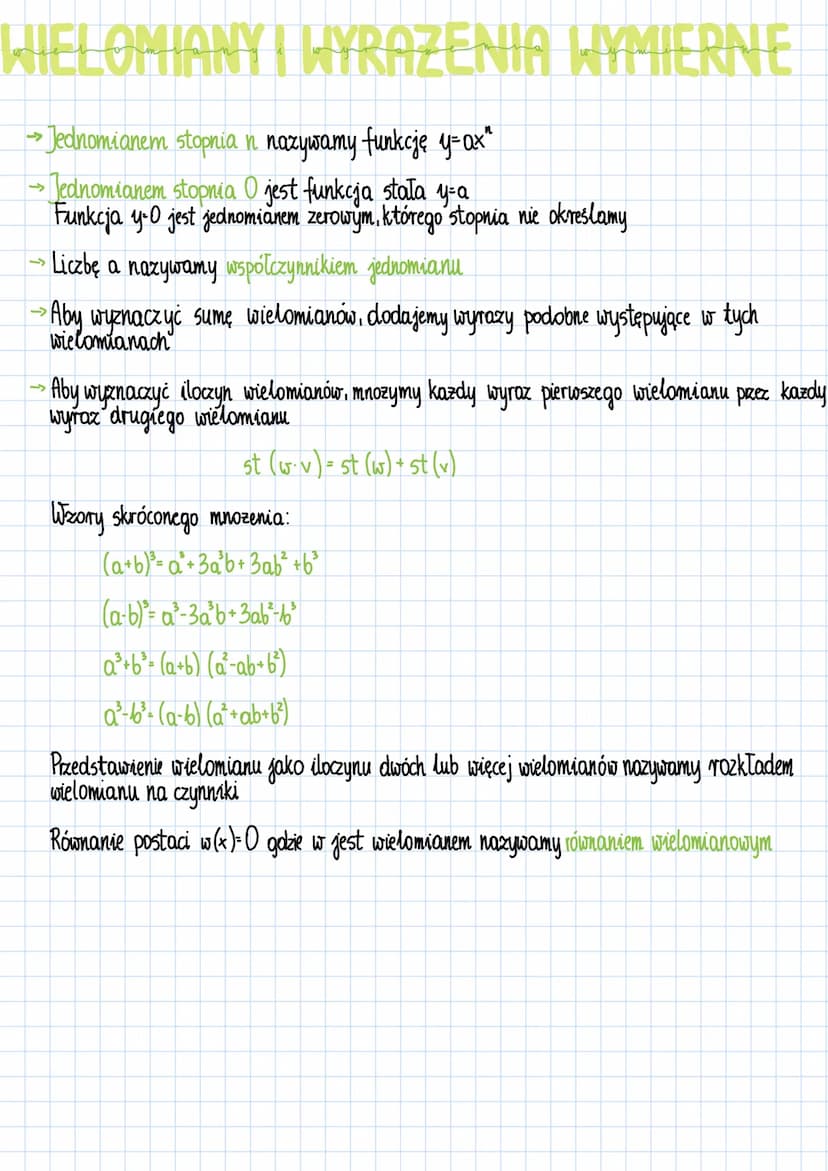 WIELOMIANY I WYRAZENIA WYMIERNE
wielomiany i wyrazenia wymierne
→ Jednomianem stopnia n nazywamy funkcję y=ax^n
→ Jednomianem stopnia 0 jest funkcja stała y=a
Funkcja y=0 jest jednomianem zerowym, którego stopnia nie określamy
→ Liczbę a nazywamy współczynnikiem jednomianu
→ Aby wyznaczyć sumę wielomianów, dodajemy wyrazy podobne występujące w tych
wielomianach
→ Aby wyznaczyć iloczyn wielomianów, mnozymy kazdy wyraz pierwszego wielomianu przez kazdy
wyraz drugiego wielomianu
st (w·v) = st (w) + st (v)
Wzory skróconego mnozenia:
(a+b)³= a³+3a²b+3ab²+b³
(a-b)³= a³-3a²b+3ab²-b³
a³+b³= (a+b) (a²-ab+b²)
a³-b³= (a-b) (a²+ab+b²)
Przedstawienie wielomianu jako iloczynu dwóch lub więcej wielomianów nazywamy rozkładem
wielomianu na czynniki
Równanie postaci w(x)=0 gdzie w jest wielomianem nazywamy równaniem wielomianowym